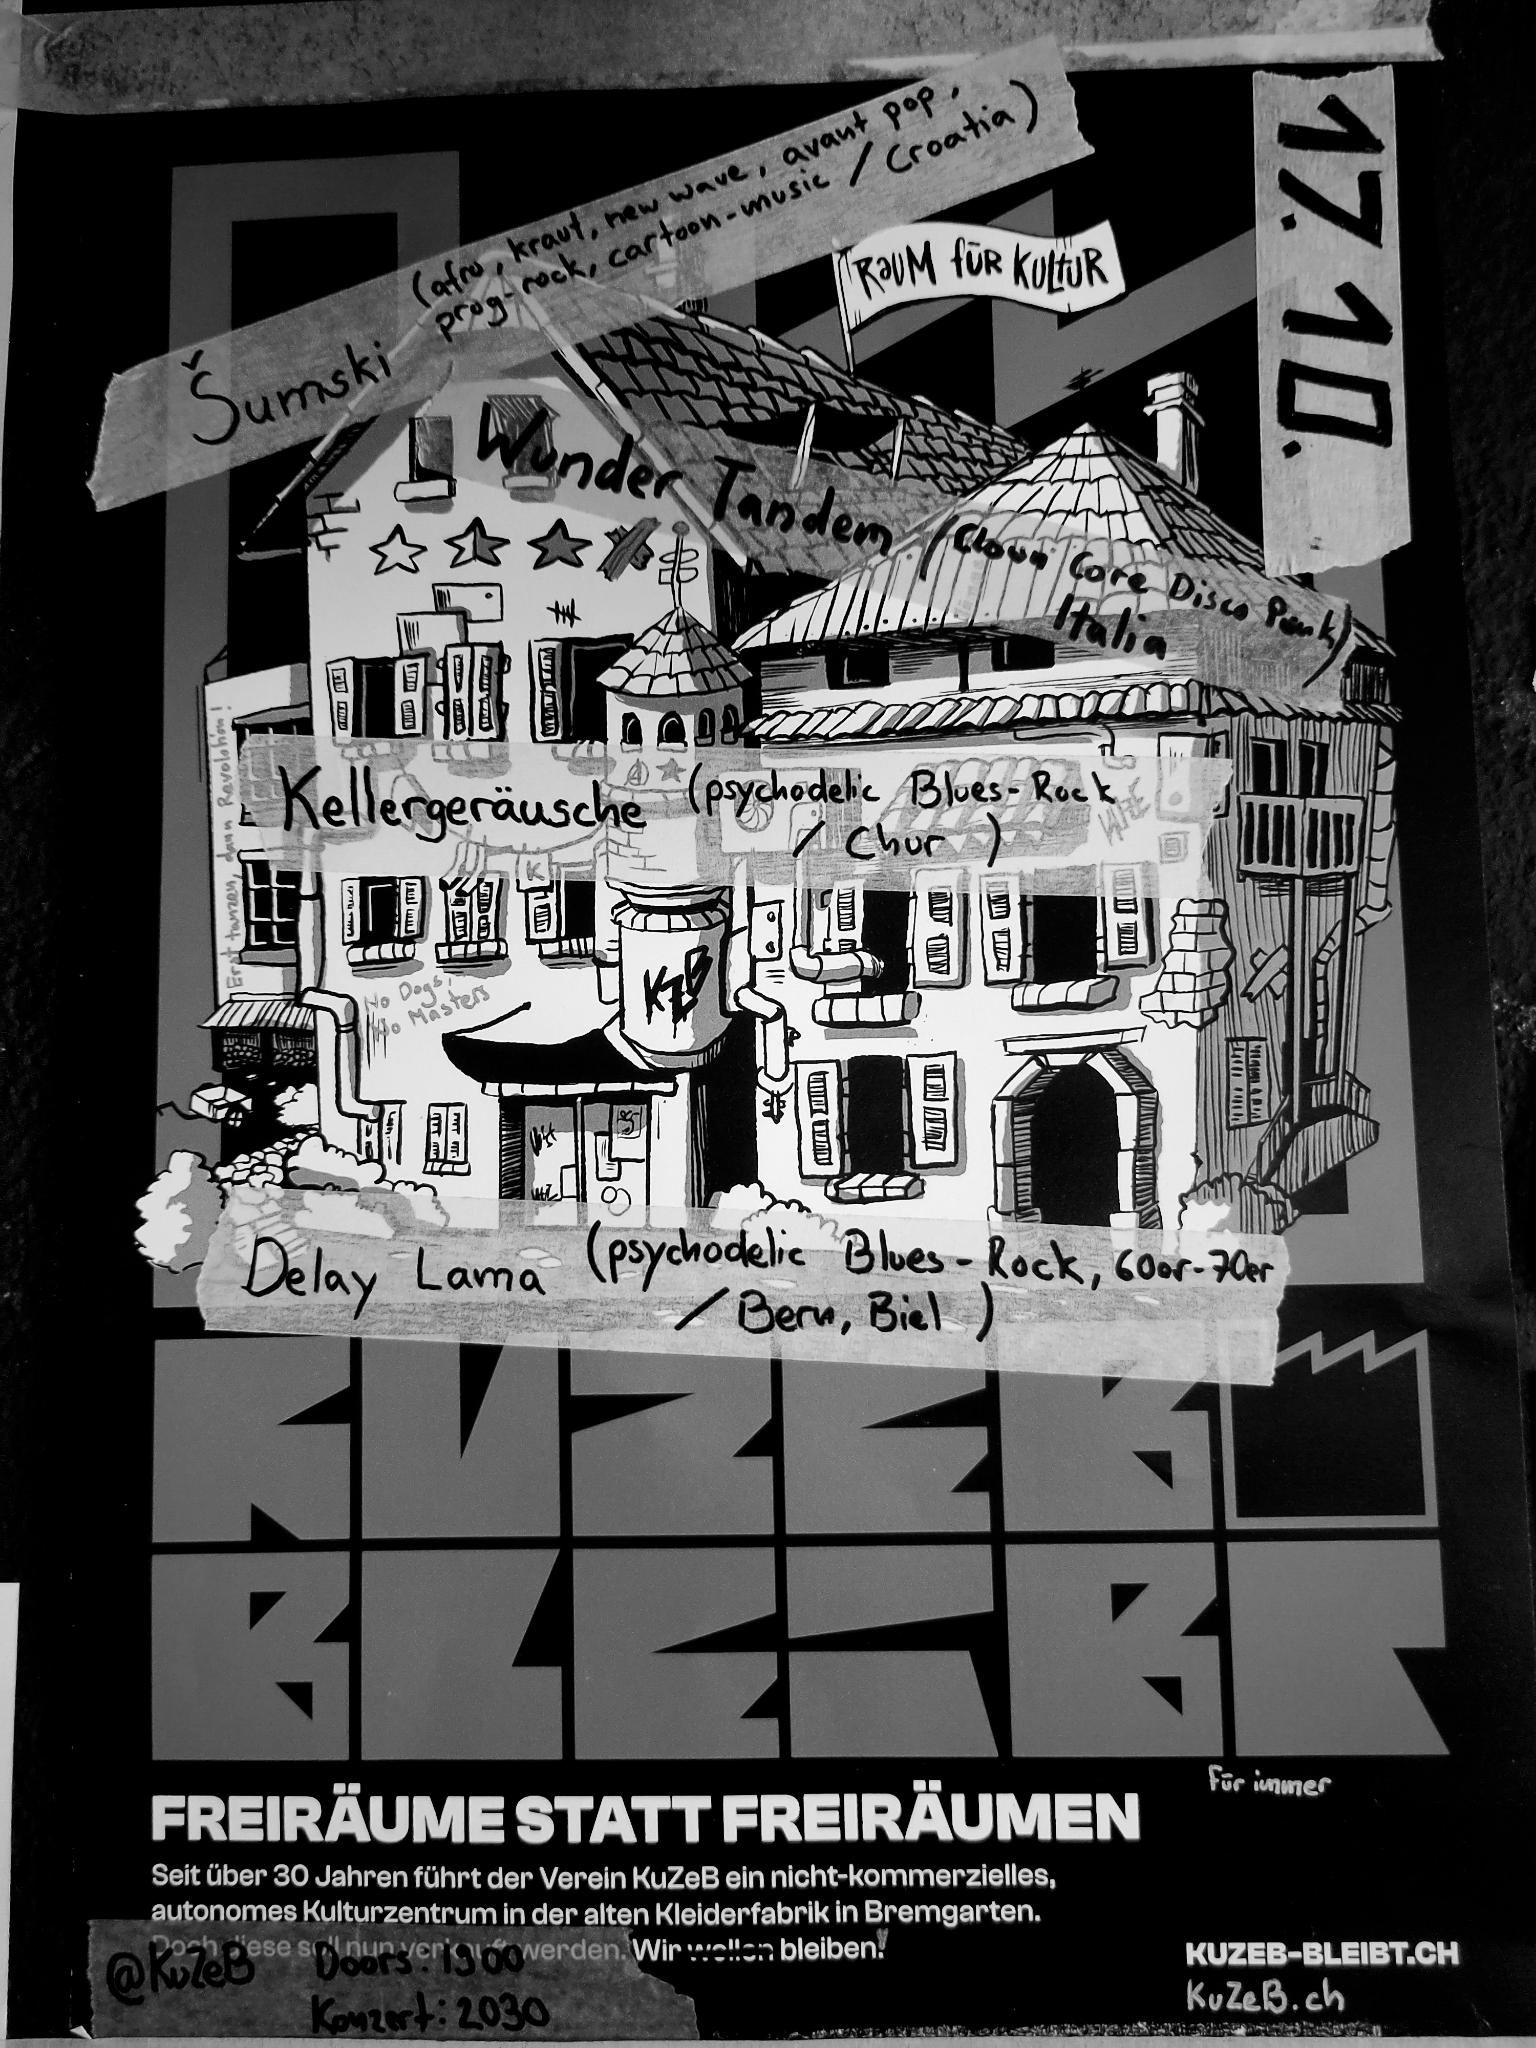 17. 10.
Šumski
(afro, kraut, new wave, avant pop,
prog-rock, cartoon-music / Croatia)
RAUM FÜR KULTUR
Wunder Tandem (Clown Core Disco Punk)
Italia
Erst tanzen, dann Revolution!
Kellergeräusche (psychodelic Blues-Rock
/ Chur)
K
No Dogs,
No Masters
KZB
Delay Lama (psychodelic Blues-Rock, 60er-70er
/ Bern, Biel)
KUZEB
BLEIBT
Für immer
FREIRÄUME STATT FREIRÄUMEN
Seit über 30 Jahren führt der Verein KuZeB ein nicht-kommerzielles,
autonomes Kulturzentrum in der alten Kleiderfabrik in Bremgarten.
Doch diese soll nun verkauft werden. Wir wollen bleiben!
@KuZeB Doors: 1900
Konzert: 2030
KUZEB-BLEIBT.CH
KuZeB.ch